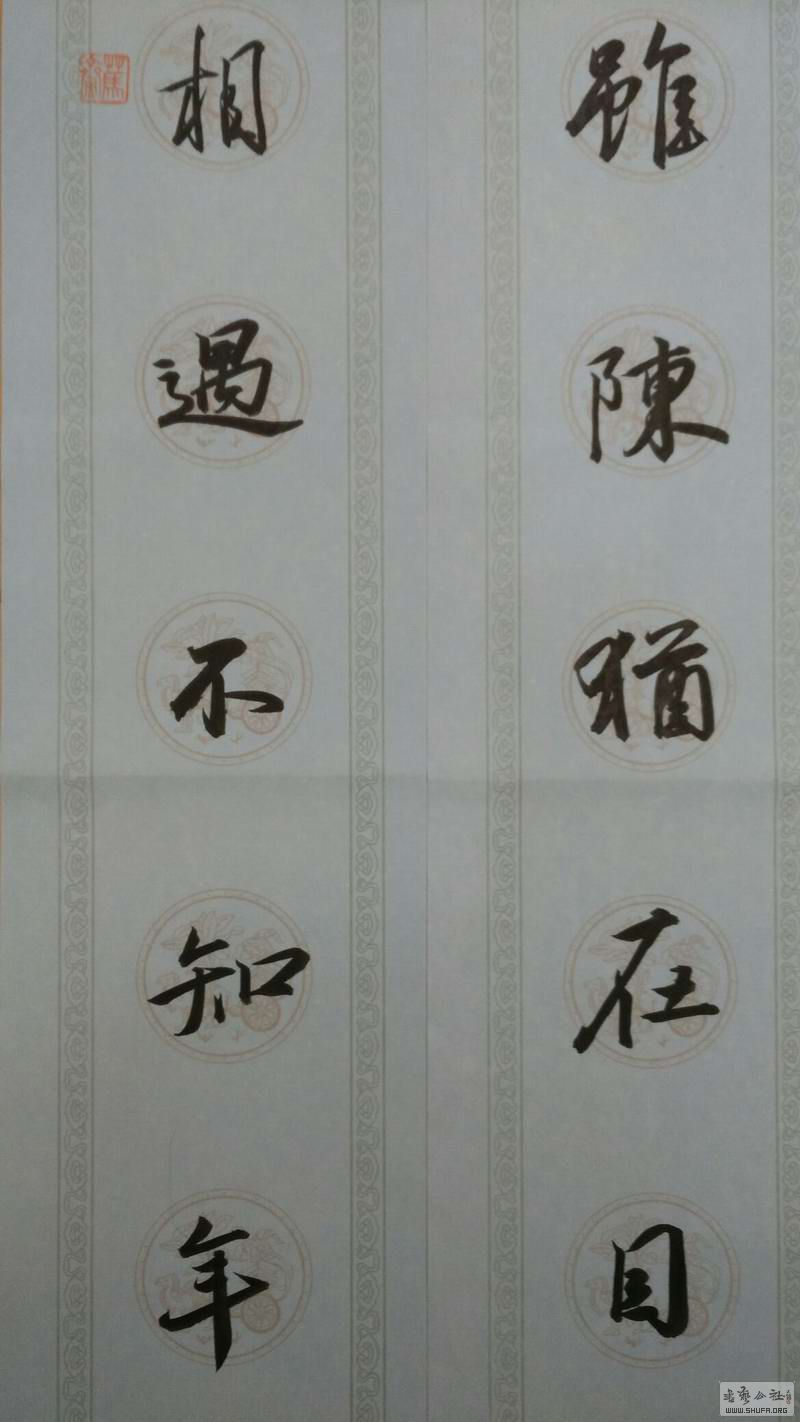 雖陳猶在目
相遇不知年
WWW.SHUFA.ORG